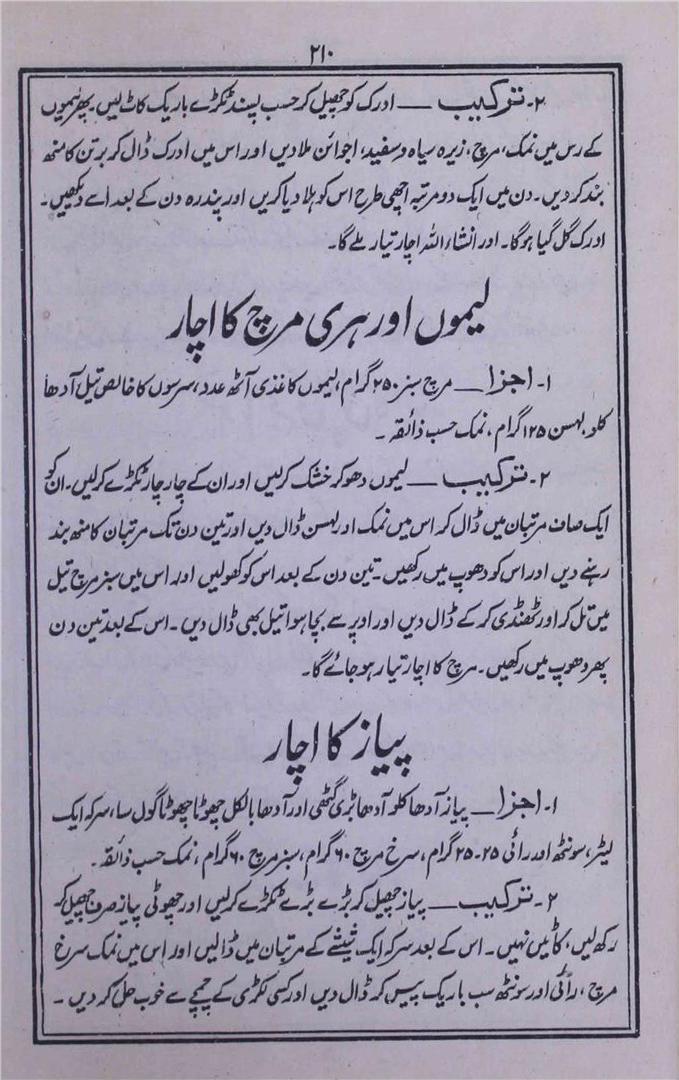 ۲۱۰
۲۔ ترکیب — ادرک کو چھیل کر حسب پسند ٹکڑے باریک کاٹ لیں۔ پھر لیموں
کے رس میں نمک، مرچ، زیرہ سیاہ و سفید، اجوائن ملا دیں اور اس میں ادرک ڈال کر برتن کا منھ
بند کر دیں۔ دن میں ایک دو مرتبہ اچھی طرح اس کو ہلا دیا کریں اور پندرہ دن کے بعد اسے دیکھیں۔
ادرک گل گیا ہو گا۔ اور انشاء اللہ اچار تیار ملے گا۔
لیموں اور ہری مرچ کا اچار
۱۔ اجزا — مرچ سبز ۲۵۰ گرام، لیموں کاغذی آٹھ عدد، سرسوں کا خالص تیل آدھا
کلو، لہسن ۱۲۵ گرام، نمک حسب ذائقہ۔
۲۔ ترکیب — لیموں دھو کر خشک کر لیں اور ان کے چار چار ٹکڑے کر لیں۔ ان کو
ایک صاف مرتبان میں ڈال کر اس میں نمک اور لہسن ڈال دیں اور تین دن تک مرتبان کا منھ بند
رہنے دیں اور اس کو دھوپ میں رکھیں۔ تین دن کے بعد اس کو کھولیں اور اس میں سبز مرچ تیل
میں تل کر اور ٹھنڈی کر کے ڈال دیں اور اوپر سے بچا ہوا تیل بھی ڈال دیں۔ اس کے بعد تین دن
پھر دھوپ میں رکھیں۔ مرچ کا اچار تیار ہو جائے گا۔
پیاز کا اچار
۱۔ اجزا — پیاز آدھا کلو آدھا بڑی گٹھی اور آدھا بالکل چھوٹا چھوٹا گول سا، سرکہ ایک
لیٹر، سونٹھ اور رائی ۲۵-۲۵ گرام، سرخ مرچ ۶۰ گرام، سبز مرچ ۶۰ گرام، نمک حسب ذائقہ۔
۲۔ ترکیب — پیاز چھیل کر بڑے بڑے ٹکڑے کر لیں اور چھوٹی پیاز صرف چھیل کر
رکھ لیں، کاٹیں نہیں۔ اس کے بعد سرکہ ایک شیشے کے مرتبان میں ڈالیں اور اس میں نمک سرخ
مرچ، رائی اور سونٹھ سب باریک پیس کر ڈال دیں اور کسی لکڑی کے چمچے سے خوب حل کر دیں۔